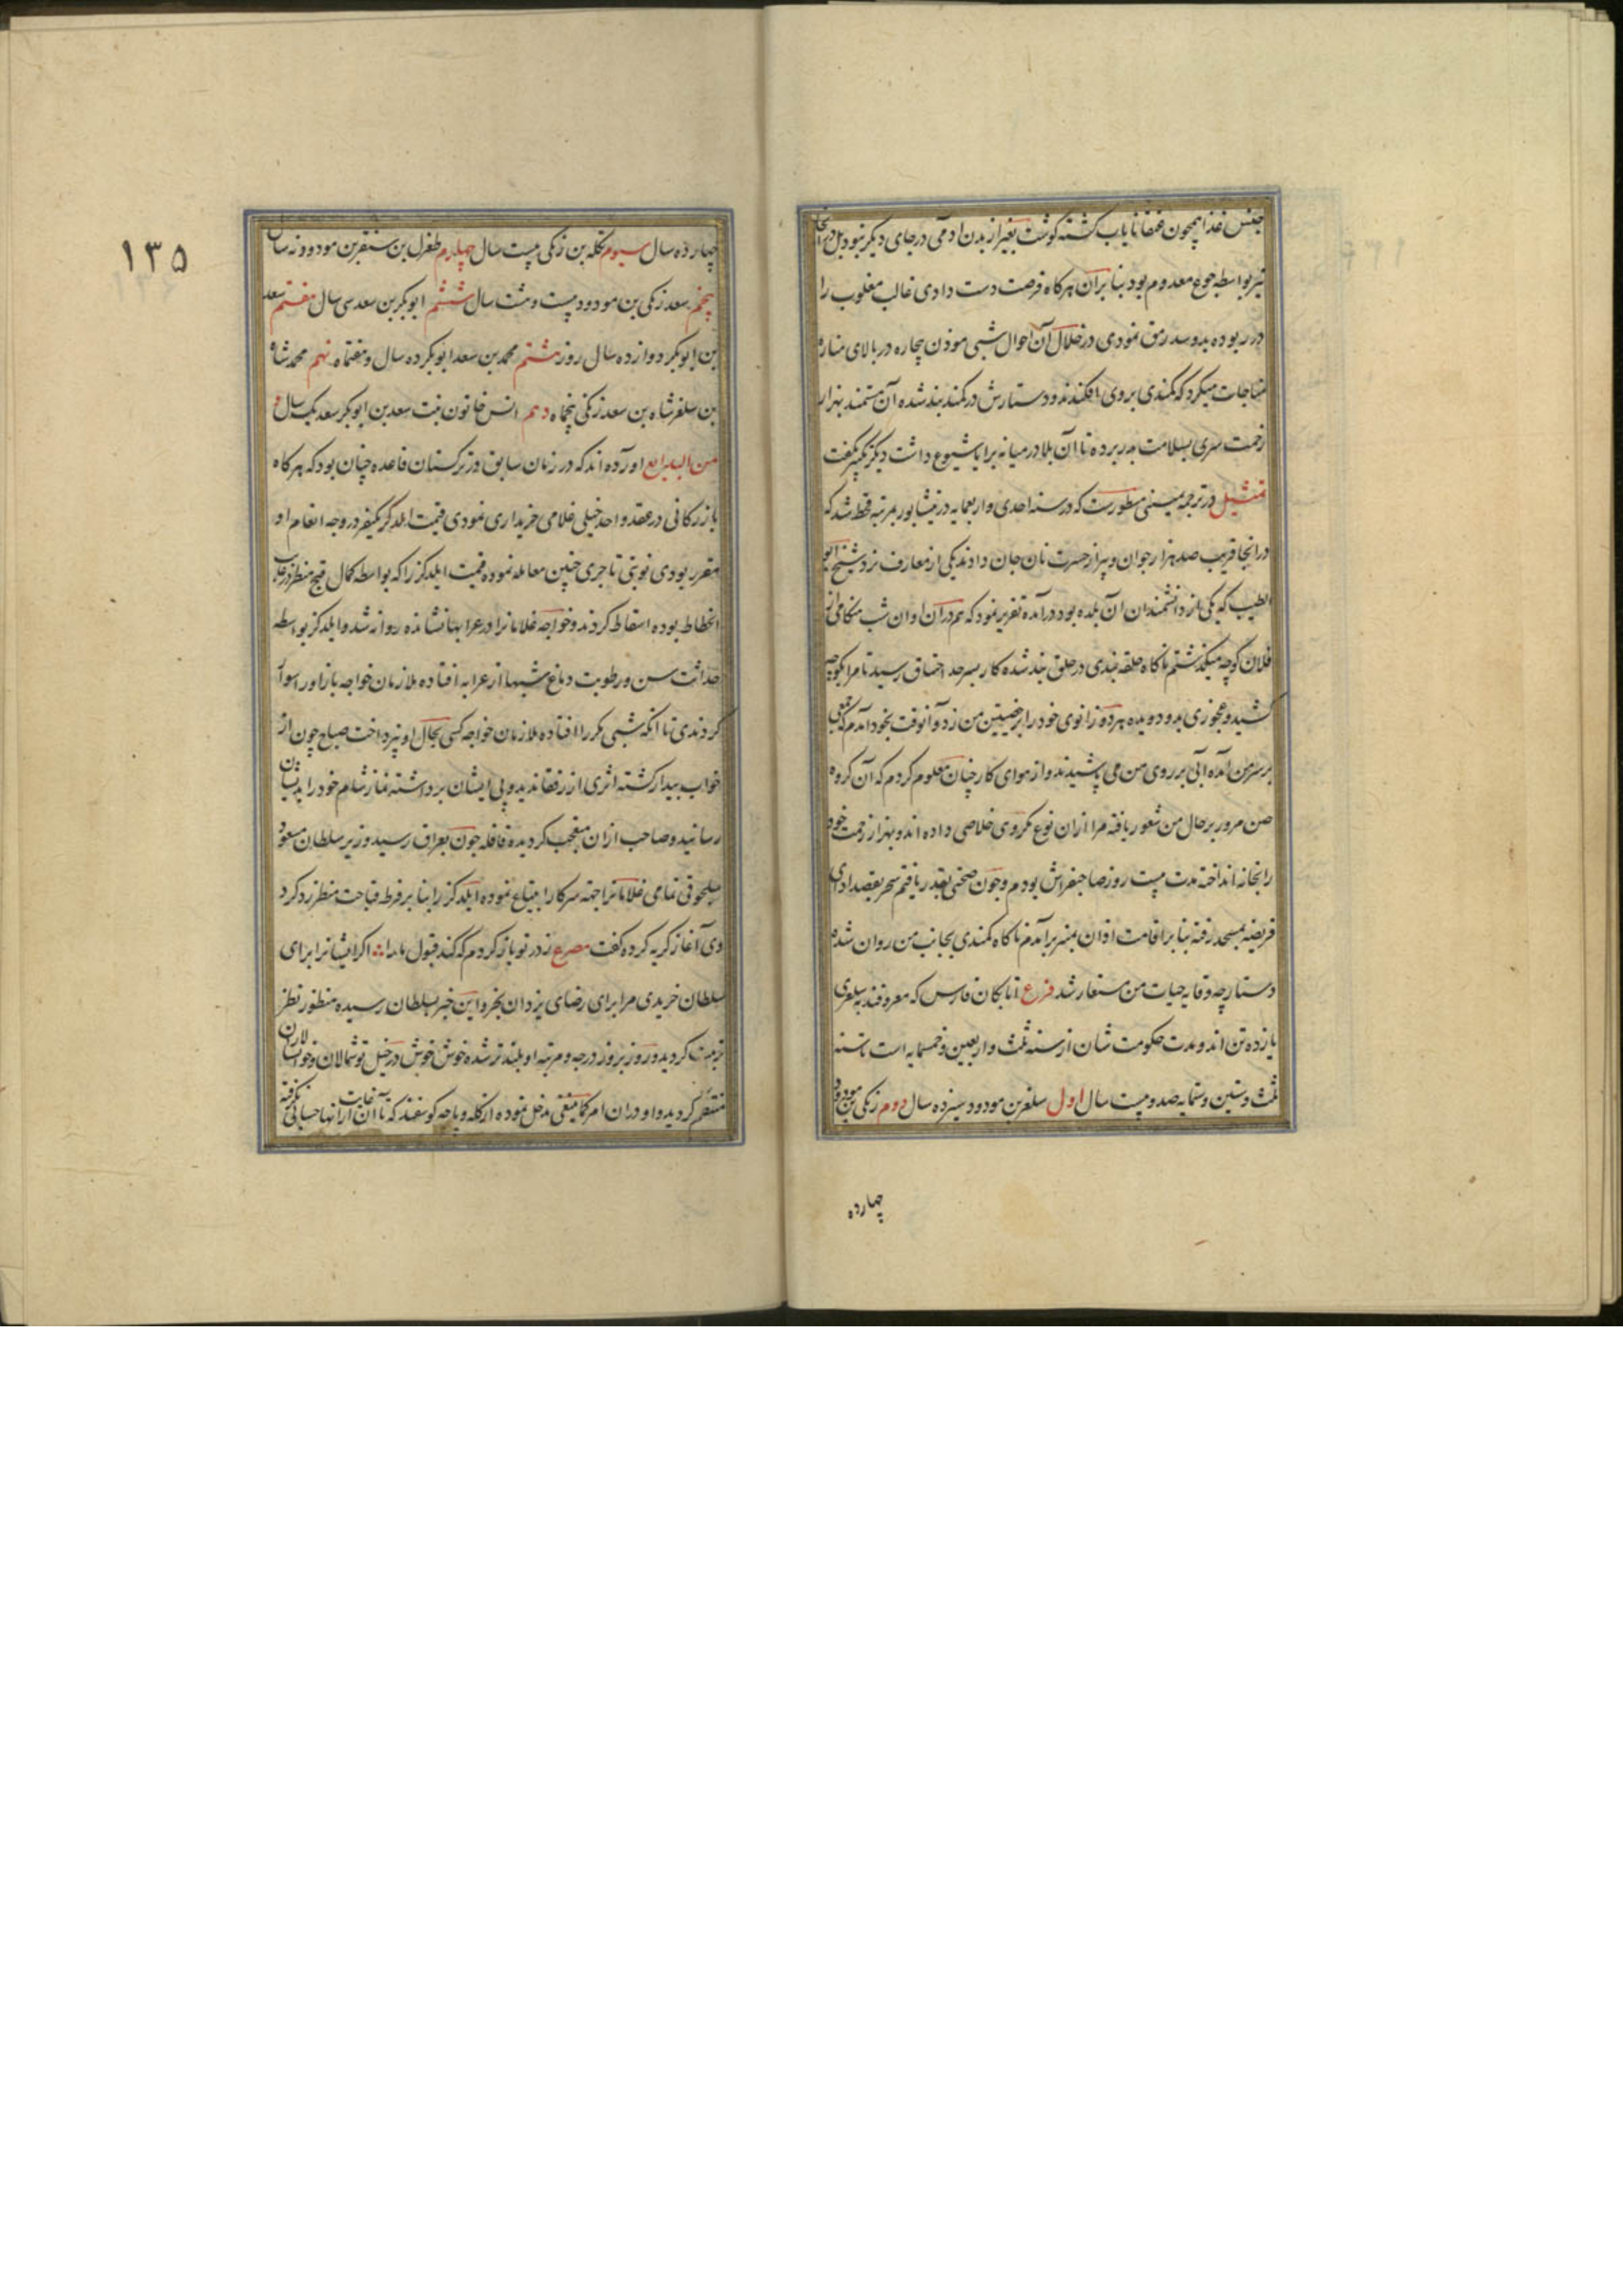 جنس غذا همچون عنقا نایاب کشته کوشت بغیر از بدن ادمی در جای دیکر نبود بل در انجا
نیز بواسطه جوع معدوم بود بنا بران هر کاه فرصت دست دادی غالب مغلوب را
در ربوده بدو سد رمق نمودی در خلال آن احوال شبی موذن بیچاره در بالای مناره
مناجات میکرد که کمندی بروی افکندند و دستارش در کمند بند شده آن مستمند بهزار
زحمت سری بسلامت بدر برده تا آن بلا در میانه برایا شیوع داشت دیکر تکبیر نکفت
تمثیل در ترجمه یمینی مسطورست که در سنه احدی واربعمایه در نیشابور بمرتبه قحط شد که
در انجا قریب صد هزار جوان و پیر از حسرت نان جان دادند یکی از معارف نزد شیخ ابو
الطیب که یکی از دانشمندان ان بلده بود در آمده تقریر نمود که هم دران اوان شب هنکامی از
فلان کوچه میکذشتم ناکاه حلقه بندی در حلق بند شده کار بسرحد اختناق رسید تا مرا بکوچه
کشید و عجوزی بدو دویده هر دو زانوی خود را بر خصیتین من زد و آنوقت بخود آمدم که جمعی
بر سر من آمده آبی بر روی من می پاشیدند و از هوای کار چنان معلوم کردم که آن کروه
حین مرور بر حال من شعور یافته مرا ازان نوع مکروی خلاصی داده اند و بهزار زحمت خود
را بخانه انداخته مدت بیست روز صاحبفراش بودم و چون صحتی بقدر یافتم سحر بقصد ادای
فریضه بمسجد رفته بنا بر اقامت اذان بمنبر برآمدم ناکاه کمندی بجانب من روان شده
دستارچه وقایه حیات من مستعار شد فرع اتابکان فارس که معروفند به سلغری
یازده تن اند و مدت حکومت شان از سنه ثلث واربعین وخمسمایه است تا سنه
ثلث وستین وستمایه صد و بیست سال اول سلغر بن مودود سیزده سال دوم زنکی بن مودود
چهارده
۱۳۵
چهارده سال سیوم تکله بن زنکی بیست سال چهارم طغرل بن سنقر بن مودود نه سال
پنجم سعد زنکی بن مودود بیست و هشت سال ششم ابوبکر بن سعد سی سال هفتم سعد
بن ابوبکر دوازده سال روز هشتم محمد بن سعد ابوبکر ده سال و هفتماه نهم محمد شاه
بن سلغر شاه بن سعد زنکی پنجماه دهم انس خاتون بنت سعد بن ابوبکر سعد یکسال و
من البدایع اورده اند که در زمان سابق در ترکستان قاعده چنان بود که هر کاه
بازرکانی در عقد واحد خیلی غلامی خریداری نمودی قیمت ایلدکز یکنفر در وجه انعام او
مقرر بودی نوبتی تاجری چنین معامله نموده قیمت ایلدکز را که بواسطه کمال قبح منظر در غایت
انحطاط بوده اسقاط کردند و خواجه غلامانرا در عرابها نشانده روانه شد و ایلدکز بواسطه
حداثت سن و رطوبت دماغ شبها از عرابه افتاده ملازمان خواجه باز اور اسوار
کردندی تا انکه شبی مکرر افتاده ملازمان خواجه کسی بحال او نپرداخت صباح چون از
خواب بیدار کشته اثری از رفقا ندید و پی ایشان برداشته نماز شام خود را بدیشان
رسانید و صاحب ازان متعجب کردیده قافله چون بعراق رسید وزیر سلطان مسعود
سلجوقی تمامی غلامانرا جهته سرکار ابتیاع نموده ایلدکز را بنا بر فرط قباحت منظر رد کرد
وی آغاز کریه کرده کفت مصرع ز در تو باز کردم که کند قبول مارا اکر ایشانرا برای
سلطان خریدی مرا برای رضای یزدان بخر و این خبر بسلطان رسیده منظور نظر
تربیت کردید و روز بروز درجه و مرتبه او بلندتر شده خوش خوش در خیل توشمالان و خوانسالاران
منتظم کردید و او دران امر کماینبغی مدخل نموده از کله و پاچه کوسفند که تا آن غایت از انها حسابی نکرفته